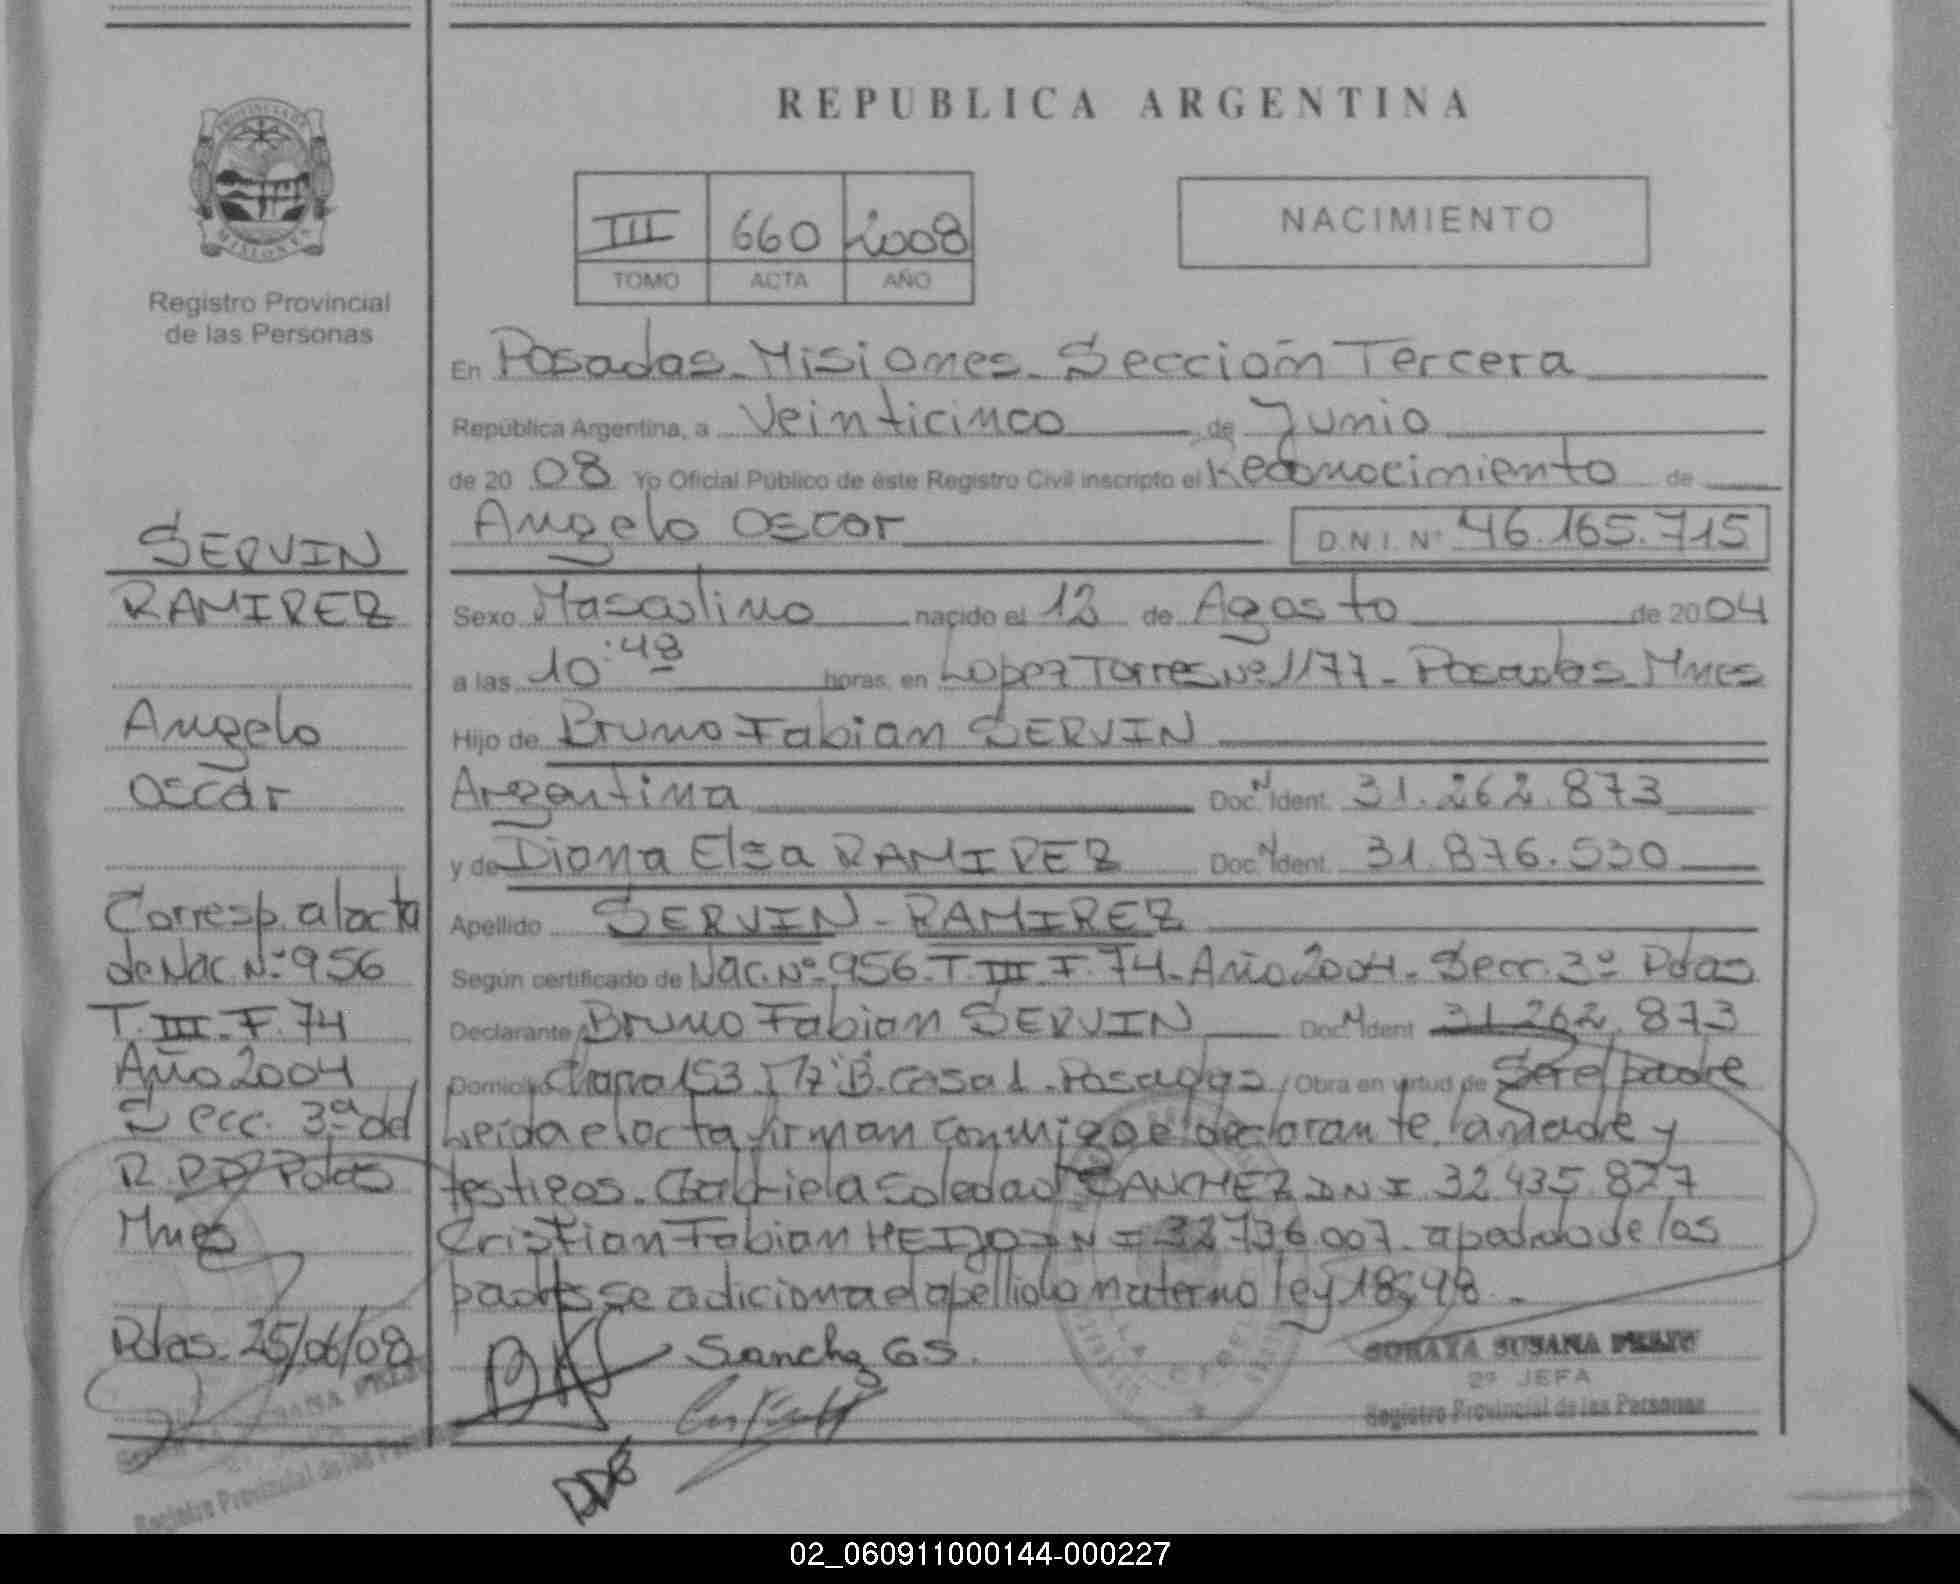 REPUBLICA ARGENTINA
III 660 2008
TOMO ACTA AÑO
NACIMIENTO
PROVINCIA DE
MISIONES
Registro Provincial
de las Personas
SERVIN
RAMIREZ
Angelo
Oscar
Corresp. al acta
de Nac. Nº 956
T. III. F. 74
Año 2004
Secc. 3ª del
R.PP Pdas
Mnes
Pdas. 25/06/08
En Posadas Misiones Sección Tercera
República Argentina, a Veinticinco de Junio
de 2008 Yo Oficial Público de éste Registro Civil inscripto el Reconocimiento de
Angelo Oscar D.N.I. Nº 46.165.715
Sexo Masculino nacido el 12 de Agosto de 2004
a las 10:48 horas, en Lopez Torres Nº 1177 - Posadas Mnes
Hijo de Bruno Fabian SERVIN
Argentina Doc. N Ident. 31.262.873
y de Diana Elsa RAMIREZ Doc. N Ident. 31.876.530
Apellido SERVIN - RAMIREZ
Según certificado de Nac. Nº 956 - T. III F. 74 - Año 2004 - Secc. 3º Pdas
Declarante Bruno Fabian SERVIN Doc. N Ident 31.262.873
Domicilio Chacra 153 Mz B. Casa 1. Posadas Obra en virtud de Ser el padre
Leida el acta firman conmigo el declarante, la madre y
testigos. Gabriela Soledad SANCHEZ DNI 32.435.827
Cristian Fabian 32.736.007. a pedido de los
padres se adiciona el apellido materno ley
Sanchez GS.
SORAYA SUSANA
2º JEFA
Registro Provincial de las Personas
Registro Provincial de las Personas
02_060911000144-000227